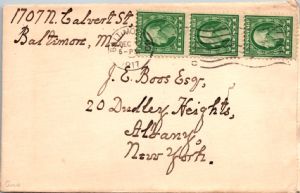 1707 N. Calvert St,
Baltimore, M
DEC
1917
J. E. Boos Esq.,
20 Dudley Heights,
Albany,
New York.